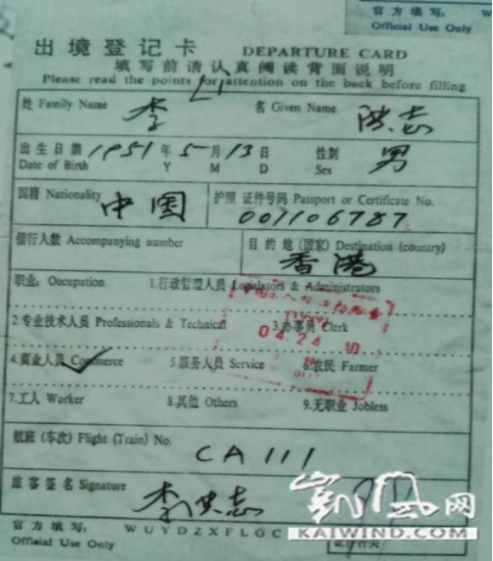 官方填写:
Official Use Only
出境登记卡 DEPARTURE CARD
填写前请认真阅读背面说明
Please read the points for attention on the back before filling
姓 Family Name 李 名 Given Name 洪志
出生日期 1951 年 5 月 13 日 性别 男
Date of Birth Y M D Sex
国籍 Nationality 中国 护照 证件号码 Passport or Certificate No.
001106787
偕行人数 Accompanying number 目的地(国家) Destination (country)
香港
职业: Occupation 1.行政管理人员 Legislators & Administrators
2.专业技术人员 Professionals & Technical 3.办事员 Clerk
04.24
4.商业人员 Commerce 5.服务人员 Service 6.农民 Farmer
7.工人 Worker 8.其他 Others 9.无职业 Jobless
航班(车次) Flight (Train) No.
CA111
旅客签名 Signature 李洪志
凯风网
KAIWIND.COM
官方填写: WUYDZXFLGC
Official Use Only